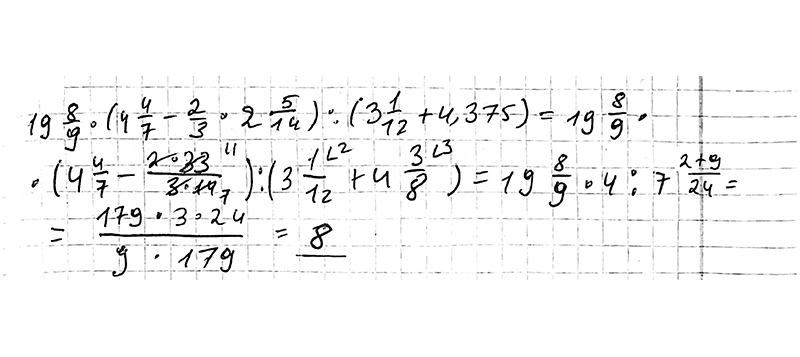 19 8/9 · (4 4/7 - 2/3 · 2 5/14) : (3 1/12 + 4,375) = 19 8/9 ·
· (4 4/7 - 2·33 11/3·14 7) : (3 1/12 ∠2 + 4 3/8 ∠3) = 19 8/9 · 4 : 7 2+9/24 =
= 179 · 3 · 24 / 9 · 179 = 8